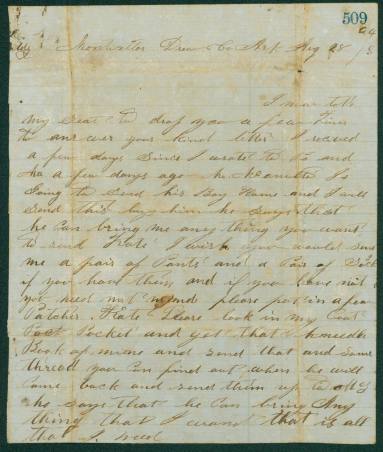 509
Monticello Drew Co Ark Aug 28
I now take
my seat to drop you a few lines
to answer your kind letter I recived
a few days since I wrote to Pa and
Ma a few days ago Mr is
Going to Send his Boy Home and I will
send this by him he says that
he Can bring me any thing you want
to send Kate I wish you would send
me a pair of Pants and a Pair of Socks
if you have them and if you have not
you need not mind please put in a few
Patches Kate Please look in my Coat
Pocket and get that needle
Book of mine and send that and some
thread you Can find out when he will
Come back and send them up to
he says that he Can bring Any
thing that I want that is all
that I need